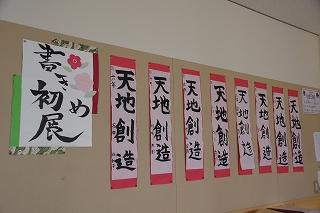 書き初め展
天地創造
天地創造
天地創造
天地創造
天地創造
天地創造
天地創造
天地創造